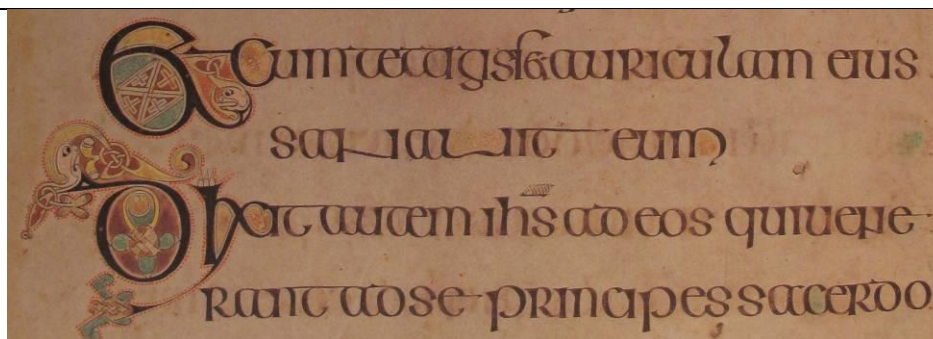 Et cum tetigiss& auriculam eius
sanauit eum
Dixit autem ihs̄ ad eos qui uene
rant ad se principes sacerdo